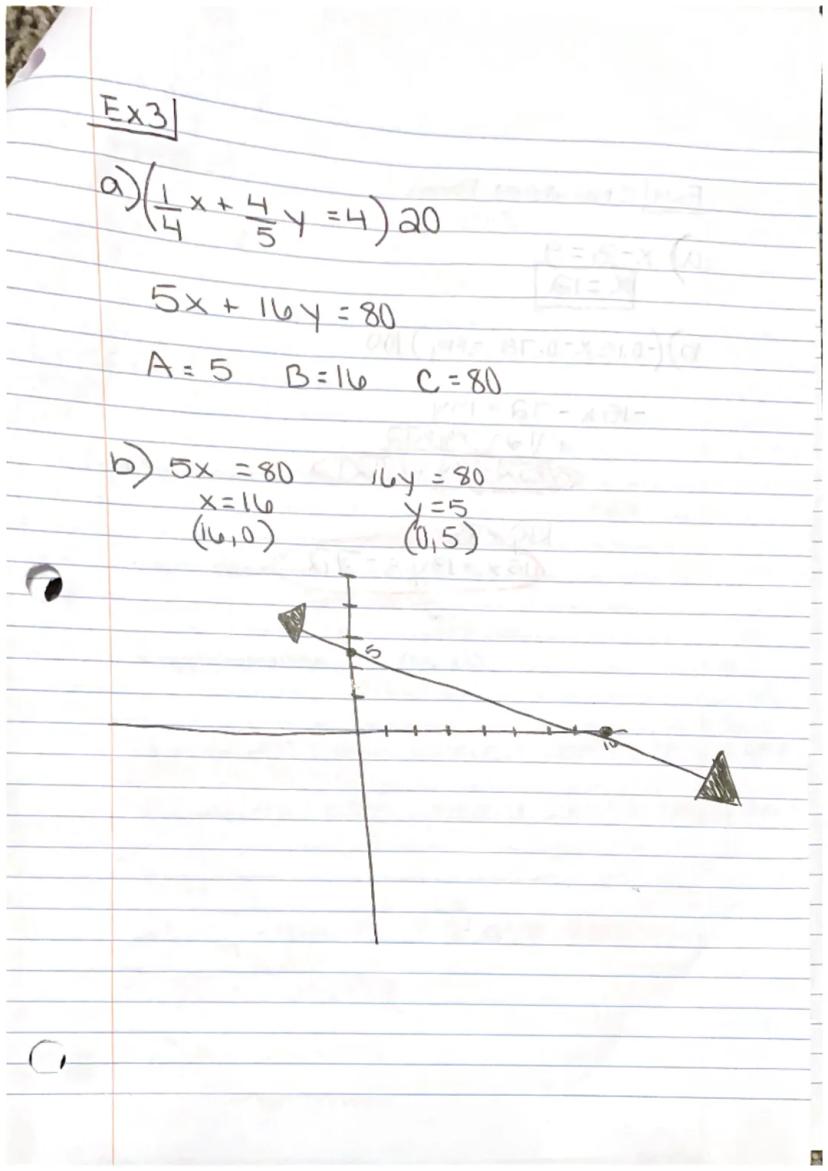 Ex3
a) (1/4 x + 4/5 y = 4) 20
5x + 16y = 80
A = 5 B = 16 C = 80
b) 5x = 80 16y = 80
x = 16 y = 5
(16,0) (0,5)
5